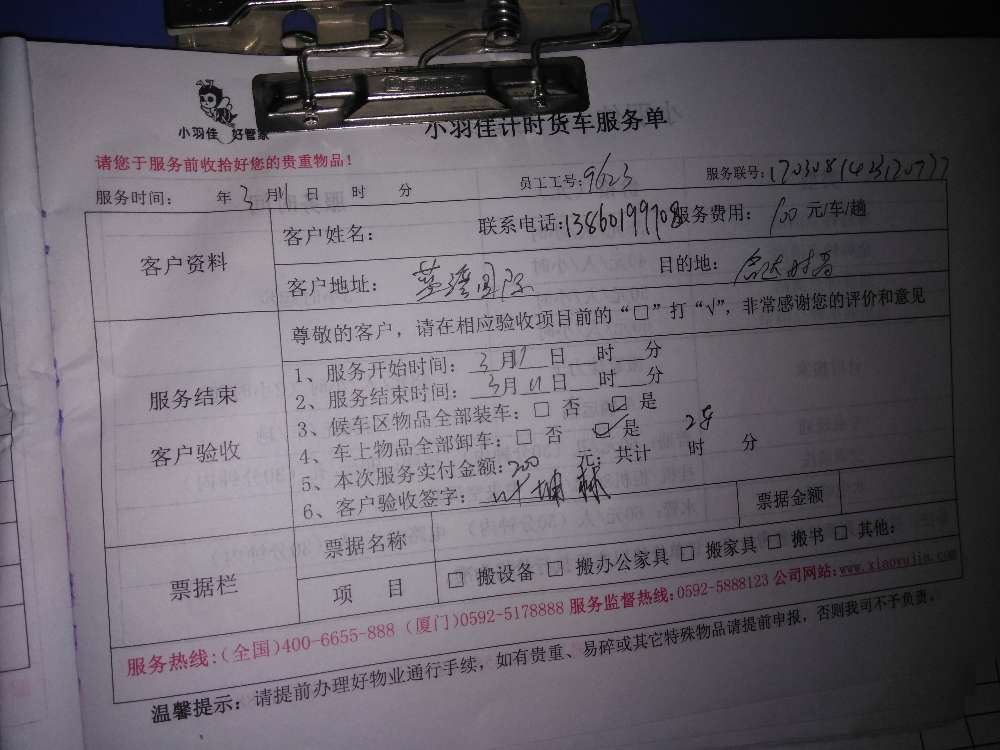 小羽佳 好管家
小羽佳计时货车服务单
请您于服务前收拾好您的贵重物品！
服务时间： 年 3 月 11 日 时 分 员工工号：9623 服务联号：
客户资料
客户姓名： 联系电话：13860199708 服务费用：100 元/车/趟
客户地址：蓝湾国际 目的地：
服务结束
客户验收
尊敬的客户，请在相应验收项目前的“□”打“√”，非常感谢您的评价和意见
1、服务开始时间：3 月 日 时 分
2、服务结束时间：3 月 11 日 时 分
3、候车区物品全部装车：□ 否 ☑ 是
4、车上物品全部卸车：□ 否 ☑ 是
5、本次服务实付金额：200 元；共计 时 分 2车
6、客户验收签字：叶坤
票据栏
票据名称 票据金额
项 目 □ 搬设备 □ 搬办公家具 □ 搬家具 □ 搬书 □ 其他：
服务热线：（全国）400-6655-888（厦门）0592-5178888 服务监督热线：0592-5888123 公司网站：www.xiaoyujia.com
温馨提示：请提前办理好物业通行手续，如有贵重、易碎或其它特殊物品请提前申报，否则我司不予负责。